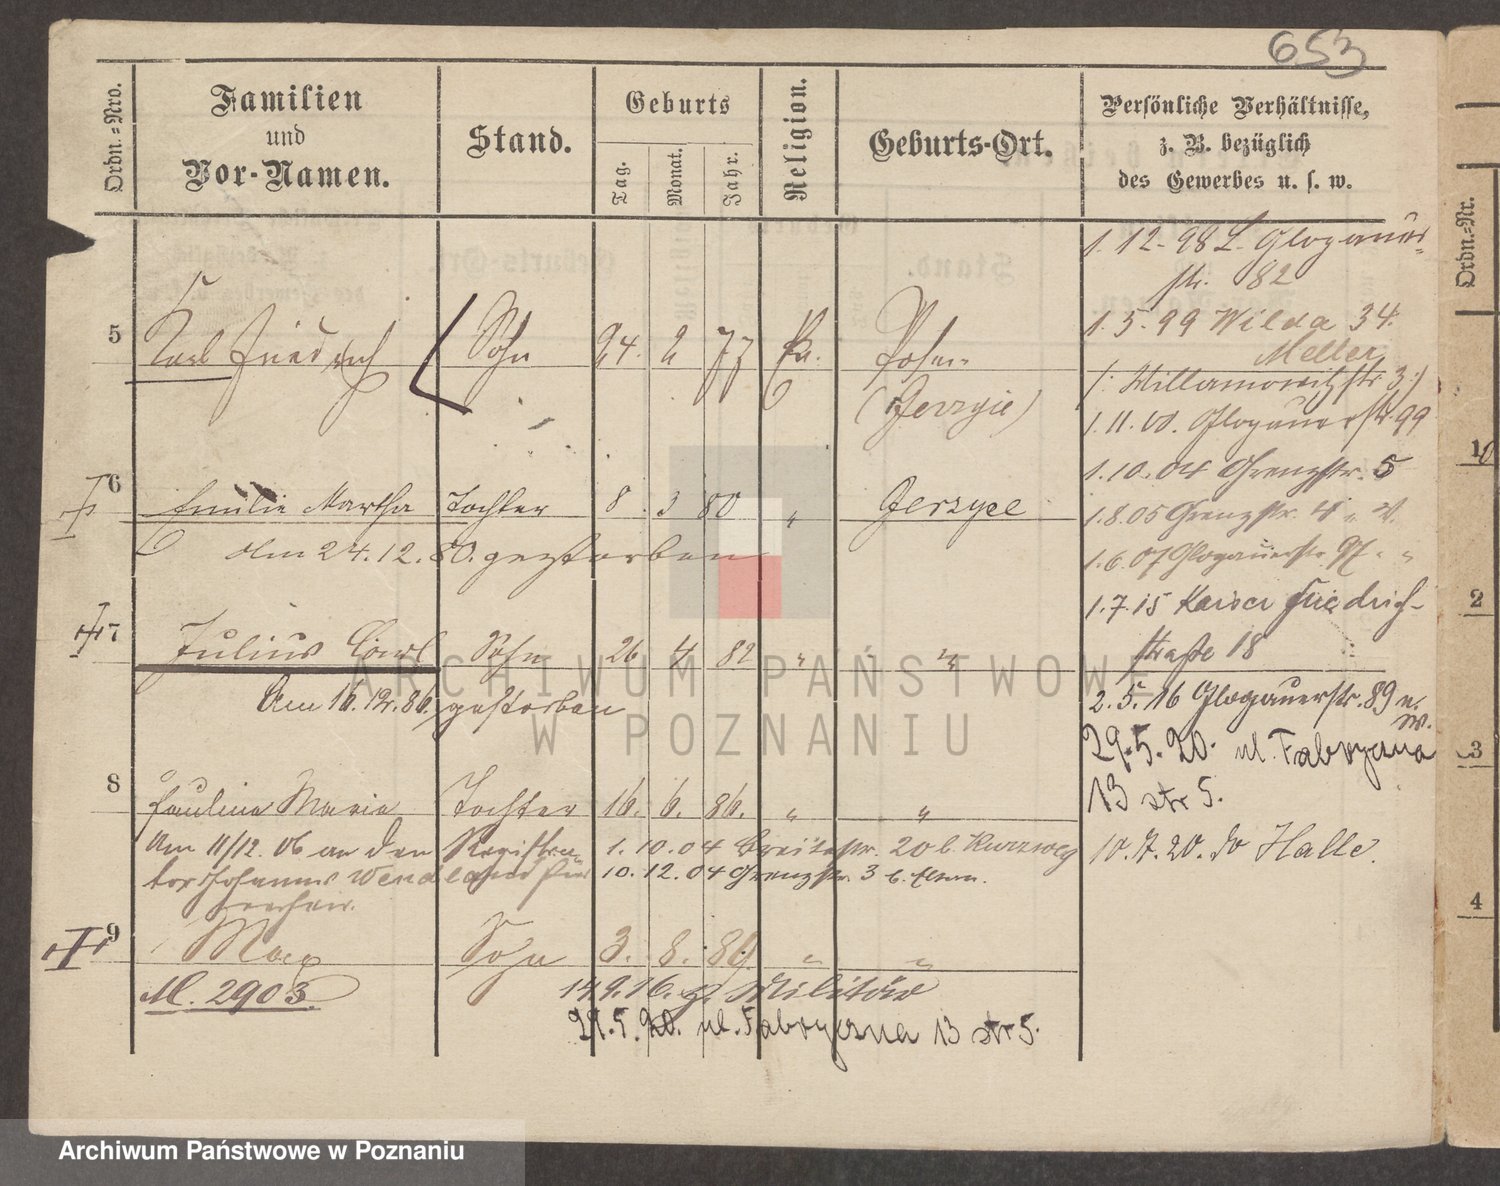 653
Ordn.=Nro.
Familien
und
Vor-Namen.
Stand.
Geburts
Tag.
Monat.
Jahr.
Religion.
Geburts-Ort.
Persönliche Verhältnisse,
z. B. bezüglich
des Gewerbes u. s. w.
Ordn.=Nr.
1. 12. 98 Glogauer
str. 82
5 Karl Friedrich Sohn 24. 2 77 Posen
(Jerzyce)
1. 5. 99 Wilda 34.
Meller
1. 11. 00. Glogauerstr. 99
1. 10. 04 Grenzstr. 5
6 Emilie Martha Tochter 8 3 80 " Jerzyce
Am 24. 12. 80. gestorben
1. 8. 05 Grenzstr. 4
1. 6. 07 Glogauerstr. 97 " "
1. 7. 15 Kaiser Friedrich-
straße 18
7 Julius Carl Sohn 26 4 82 " "
Am 16. 12. 86. gestorben
2. 5. 16 Glogauerstr. 89
29. 5. 20. ul. Fabryczna
13 str 5.
8 Pauline Marie Tochter 16. 6. 86. " "
Am 11/12. 06 an den Registra-
tor Johannes Wendland
1. 10. 04 Breitestr. 20 b. Kurzweg
10. 12. 04 Grenzstr. 3 b.
10. 7. 20. do Halle.
9 Max Sohn 3. 8. 89 " "
M. 2903.
14. 9. 16. z. Militär
29. 5. 20. ul. Fabryczna 13 str 5.
10
2
3
4
ARCHIWUM PAŃSTWOWE
W POZNANIU
Archiwum Państwowe w Poznaniu